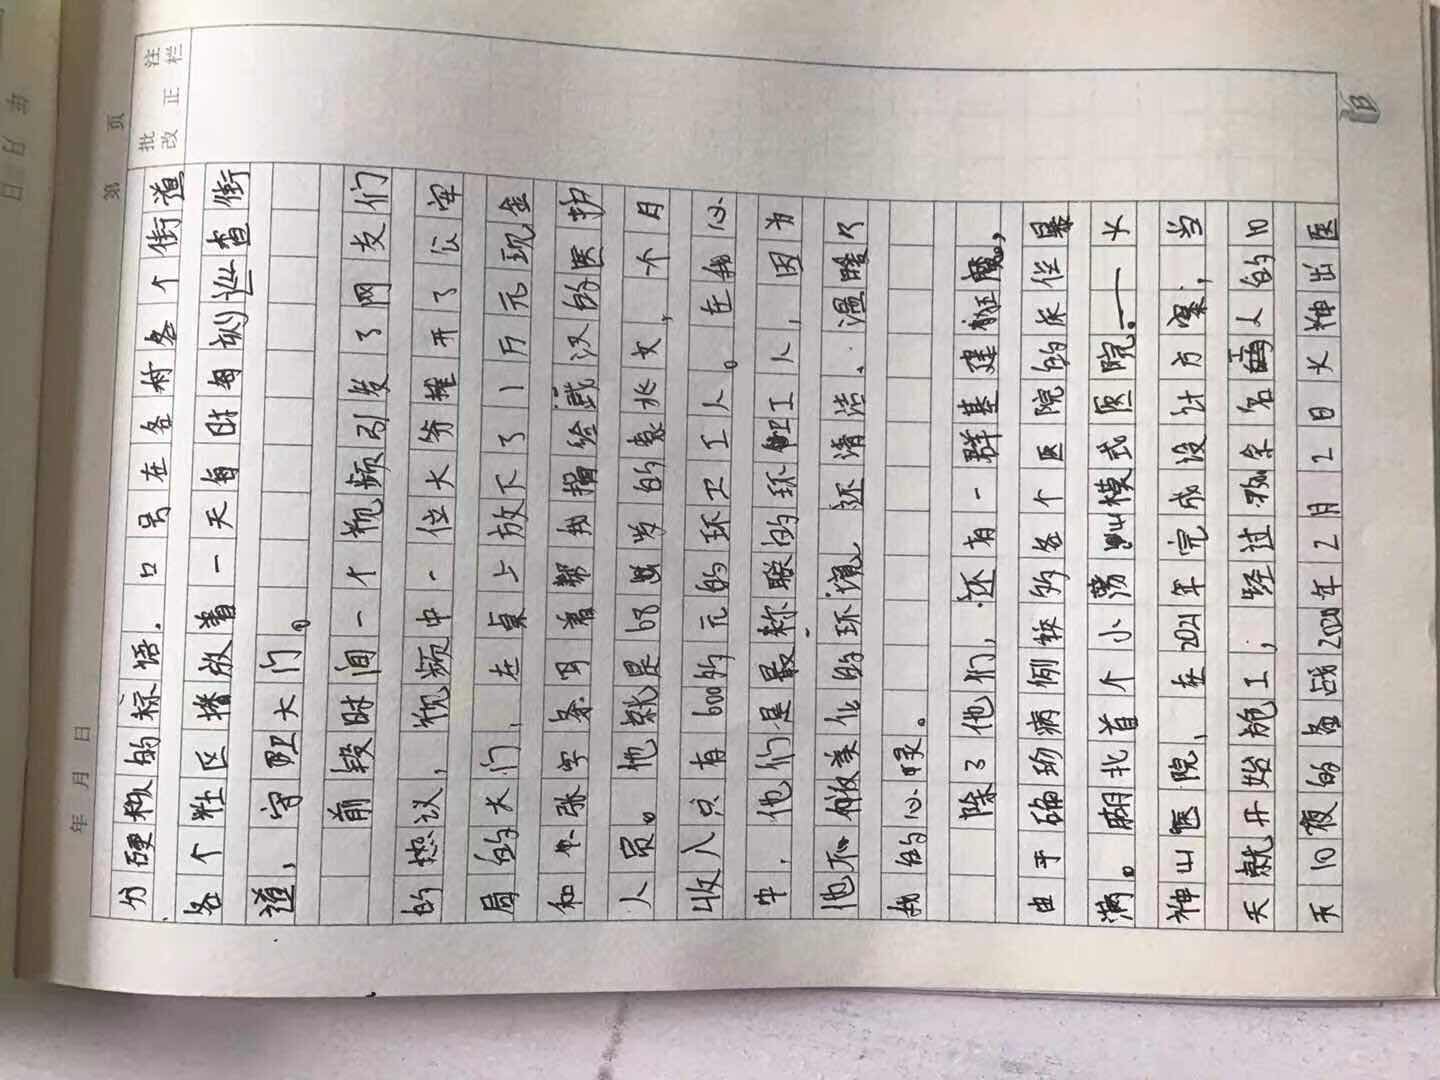 年 月 日
第 页
批改 正 注栏
分硬核的标语。口号在各村各个街道
各个社区播放着一天每时每刻巡查街
道,守卫大门。
前段时间一个视频引发了网友们
的热议,视频中一位大爷推开了公安
局的大门,在桌上放下了1万元现金
和一张字条写着帮我捐给武汉的医护
人员。他就是68岁的袁兆文,一个月
收入只有600的元的环卫工人。在我心
中,他们是最称职的环卫工人,因为
他不做美化的环境、还清洁、温暖了
我的心灵。
除了他们,还有一群基建狂魔。
由于确珍病例较多各个医院的床位暴
满。胡北首个小汤山模式医院。——火
神山医院、在2021年完成设计方案,当
天就开始施工,经过7500余名人的10
天10夜的备战2020年2月2日火神山医
年 月 日